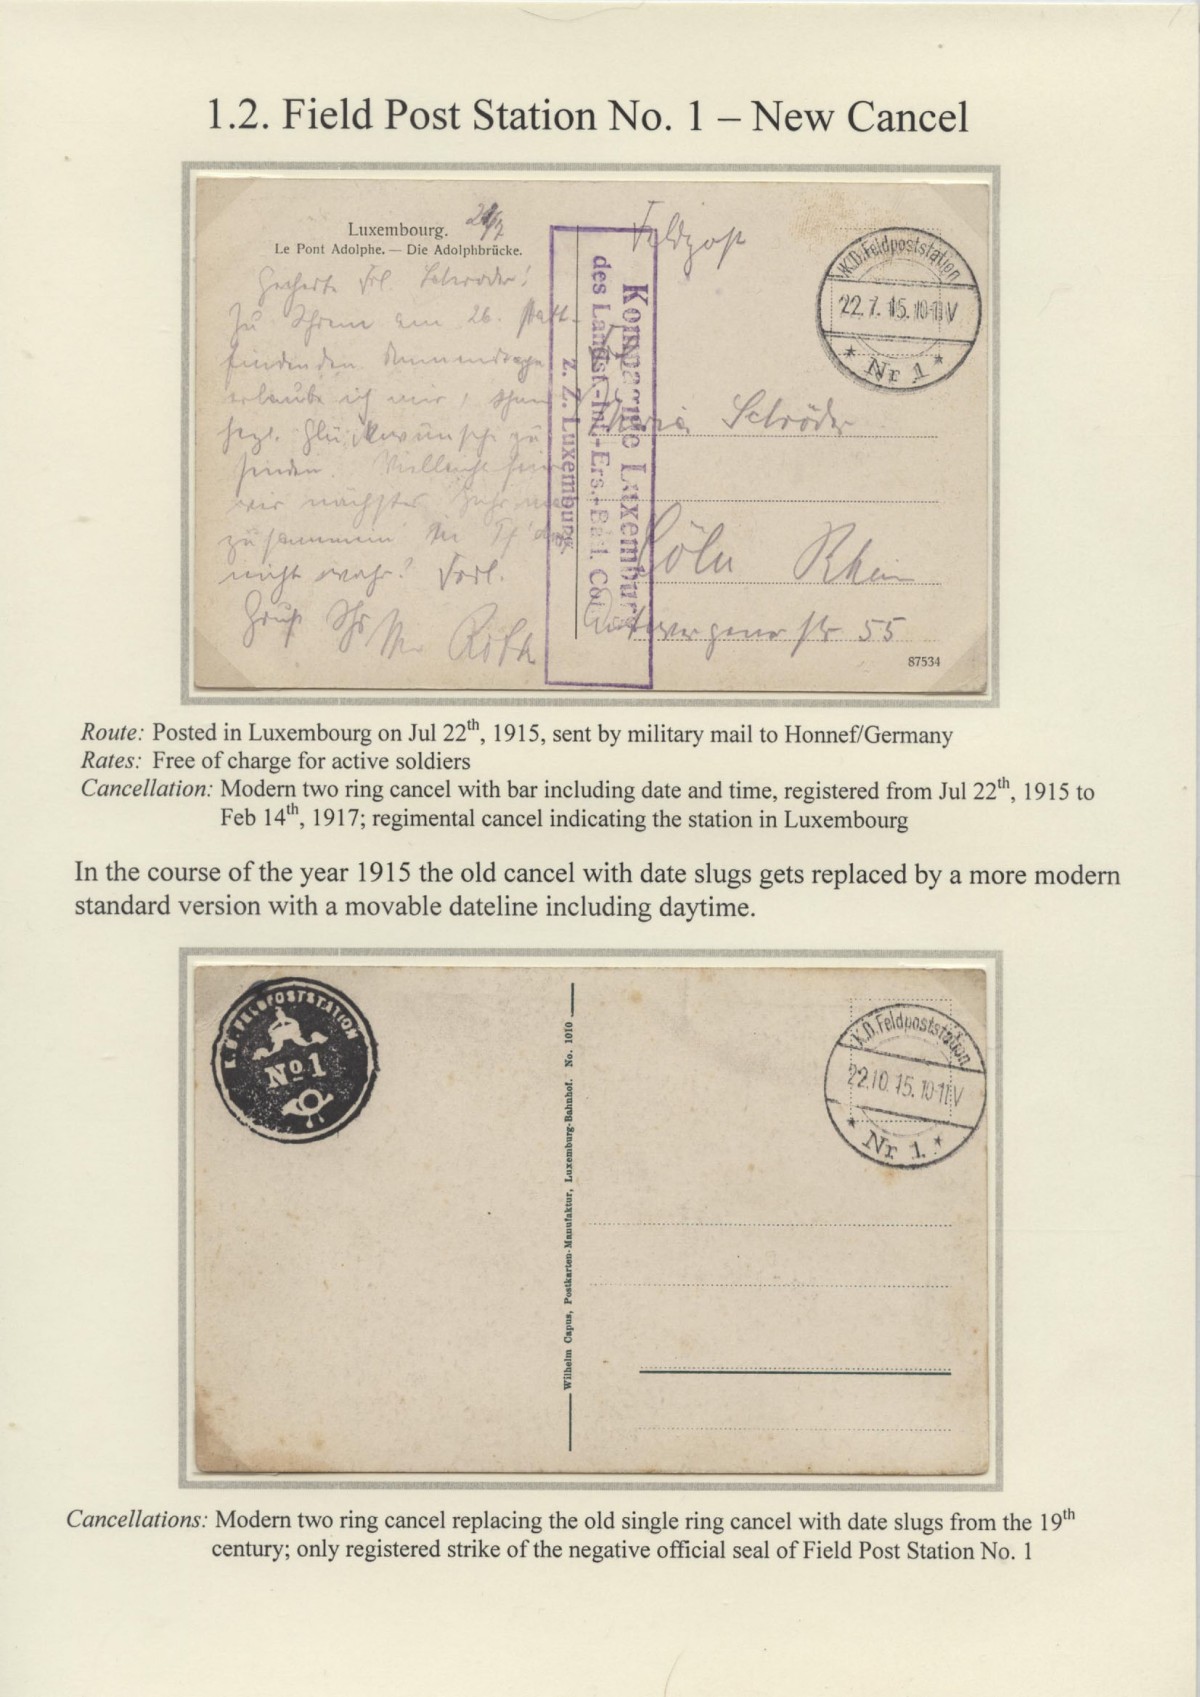 1.2. Field Post Station No. 1 – New Cancel
Luxembourg.
Le Pont Adolphe. — Die Adolphbrücke.
Feldpost
K.D. Feldpoststation
22.7.15. 10-11 V
* Nr 1 *
Kompagnie Luxemburg
des Landst.-Inf.-Ers.-Batl.
z. Z. Luxemburg.
Geehrte Frl. Schröder!
Zu Ihrem am 26. statt-
findenden Namenstage
erlaube ich mir, Ihnen
herzl. Glückwünsche zu
senden. Vielleicht
wir nächstes Jahr
zusammen in
nicht wahr? Frdl.
Gruß Ihr
Schröder
Cöln Rhein
str 55
87534
Route: Posted in Luxembourg on Jul 22th, 1915, sent by military mail to Honnef/Germany
Rates: Free of charge for active soldiers
Cancellation: Modern two ring cancel with bar including date and time, registered from Jul 22th, 1915 to
Feb 14th, 1917; regimental cancel indicating the station in Luxembourg
In the course of the year 1915 the old cancel with date slugs gets replaced by a more modern
standard version with a movable dateline including daytime.
K. D. FELDPOSTSTATION
No 1
K.D. Feldpoststation
22.10.15. 10-11 V
* Nr 1. *
Wilhelm Capus, Postkarten-Manufaktur, Luxemburg-Bahnhof. No. 1010
Cancellations: Modern two ring cancel replacing the old single ring cancel with date slugs from the 19th
century; only registered strike of the negative official seal of Field Post Station No. 1